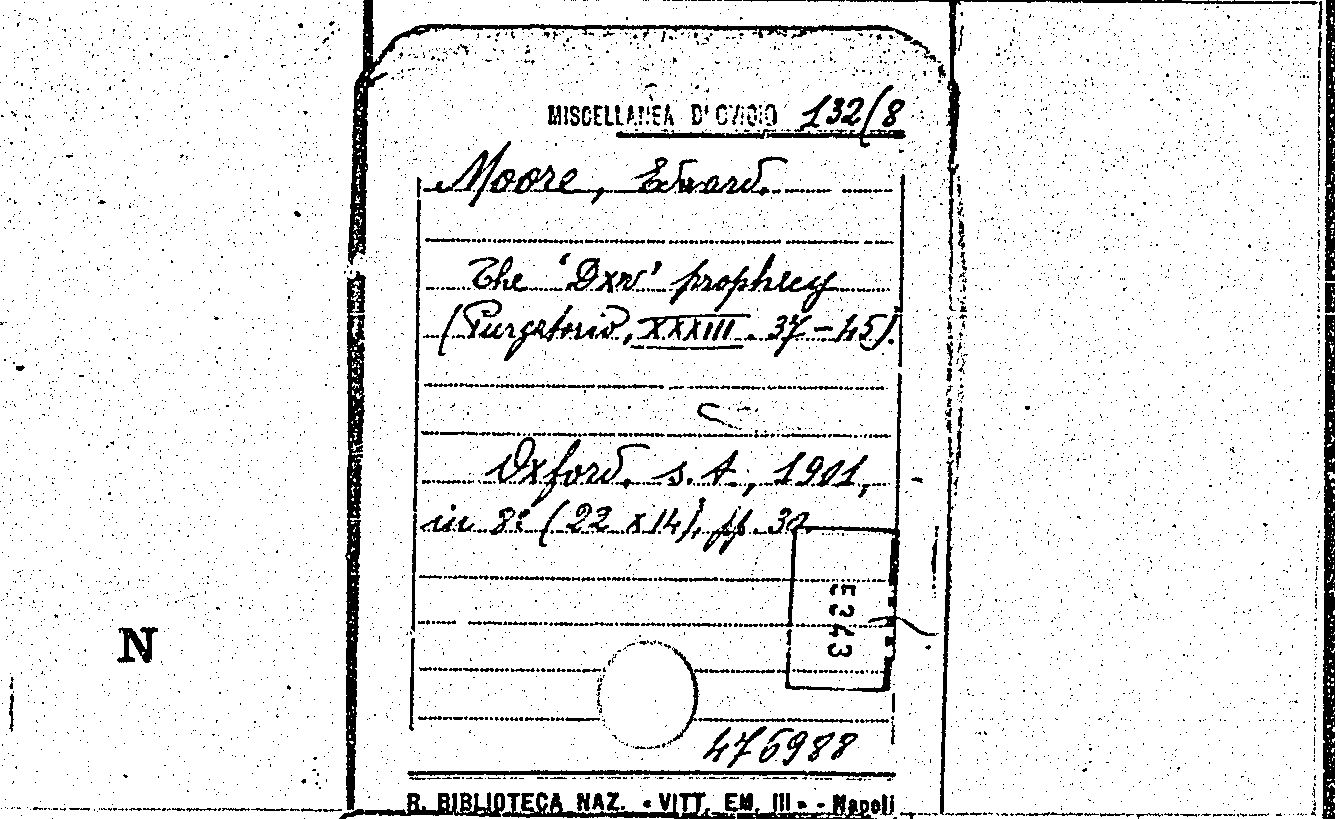 MISCELLANEA D'OVIDIO 132/8
Moore, Edward.
The 'Dxv' prophecy
(Purgatorio, XXXIII. 37-45).
Oxford. s. t., 1901,
in 8° (22 x 14), pp. 32
5343
N
476988
R. BIBLIOTECA NAZ. « VITT. EM. III » - Napoli